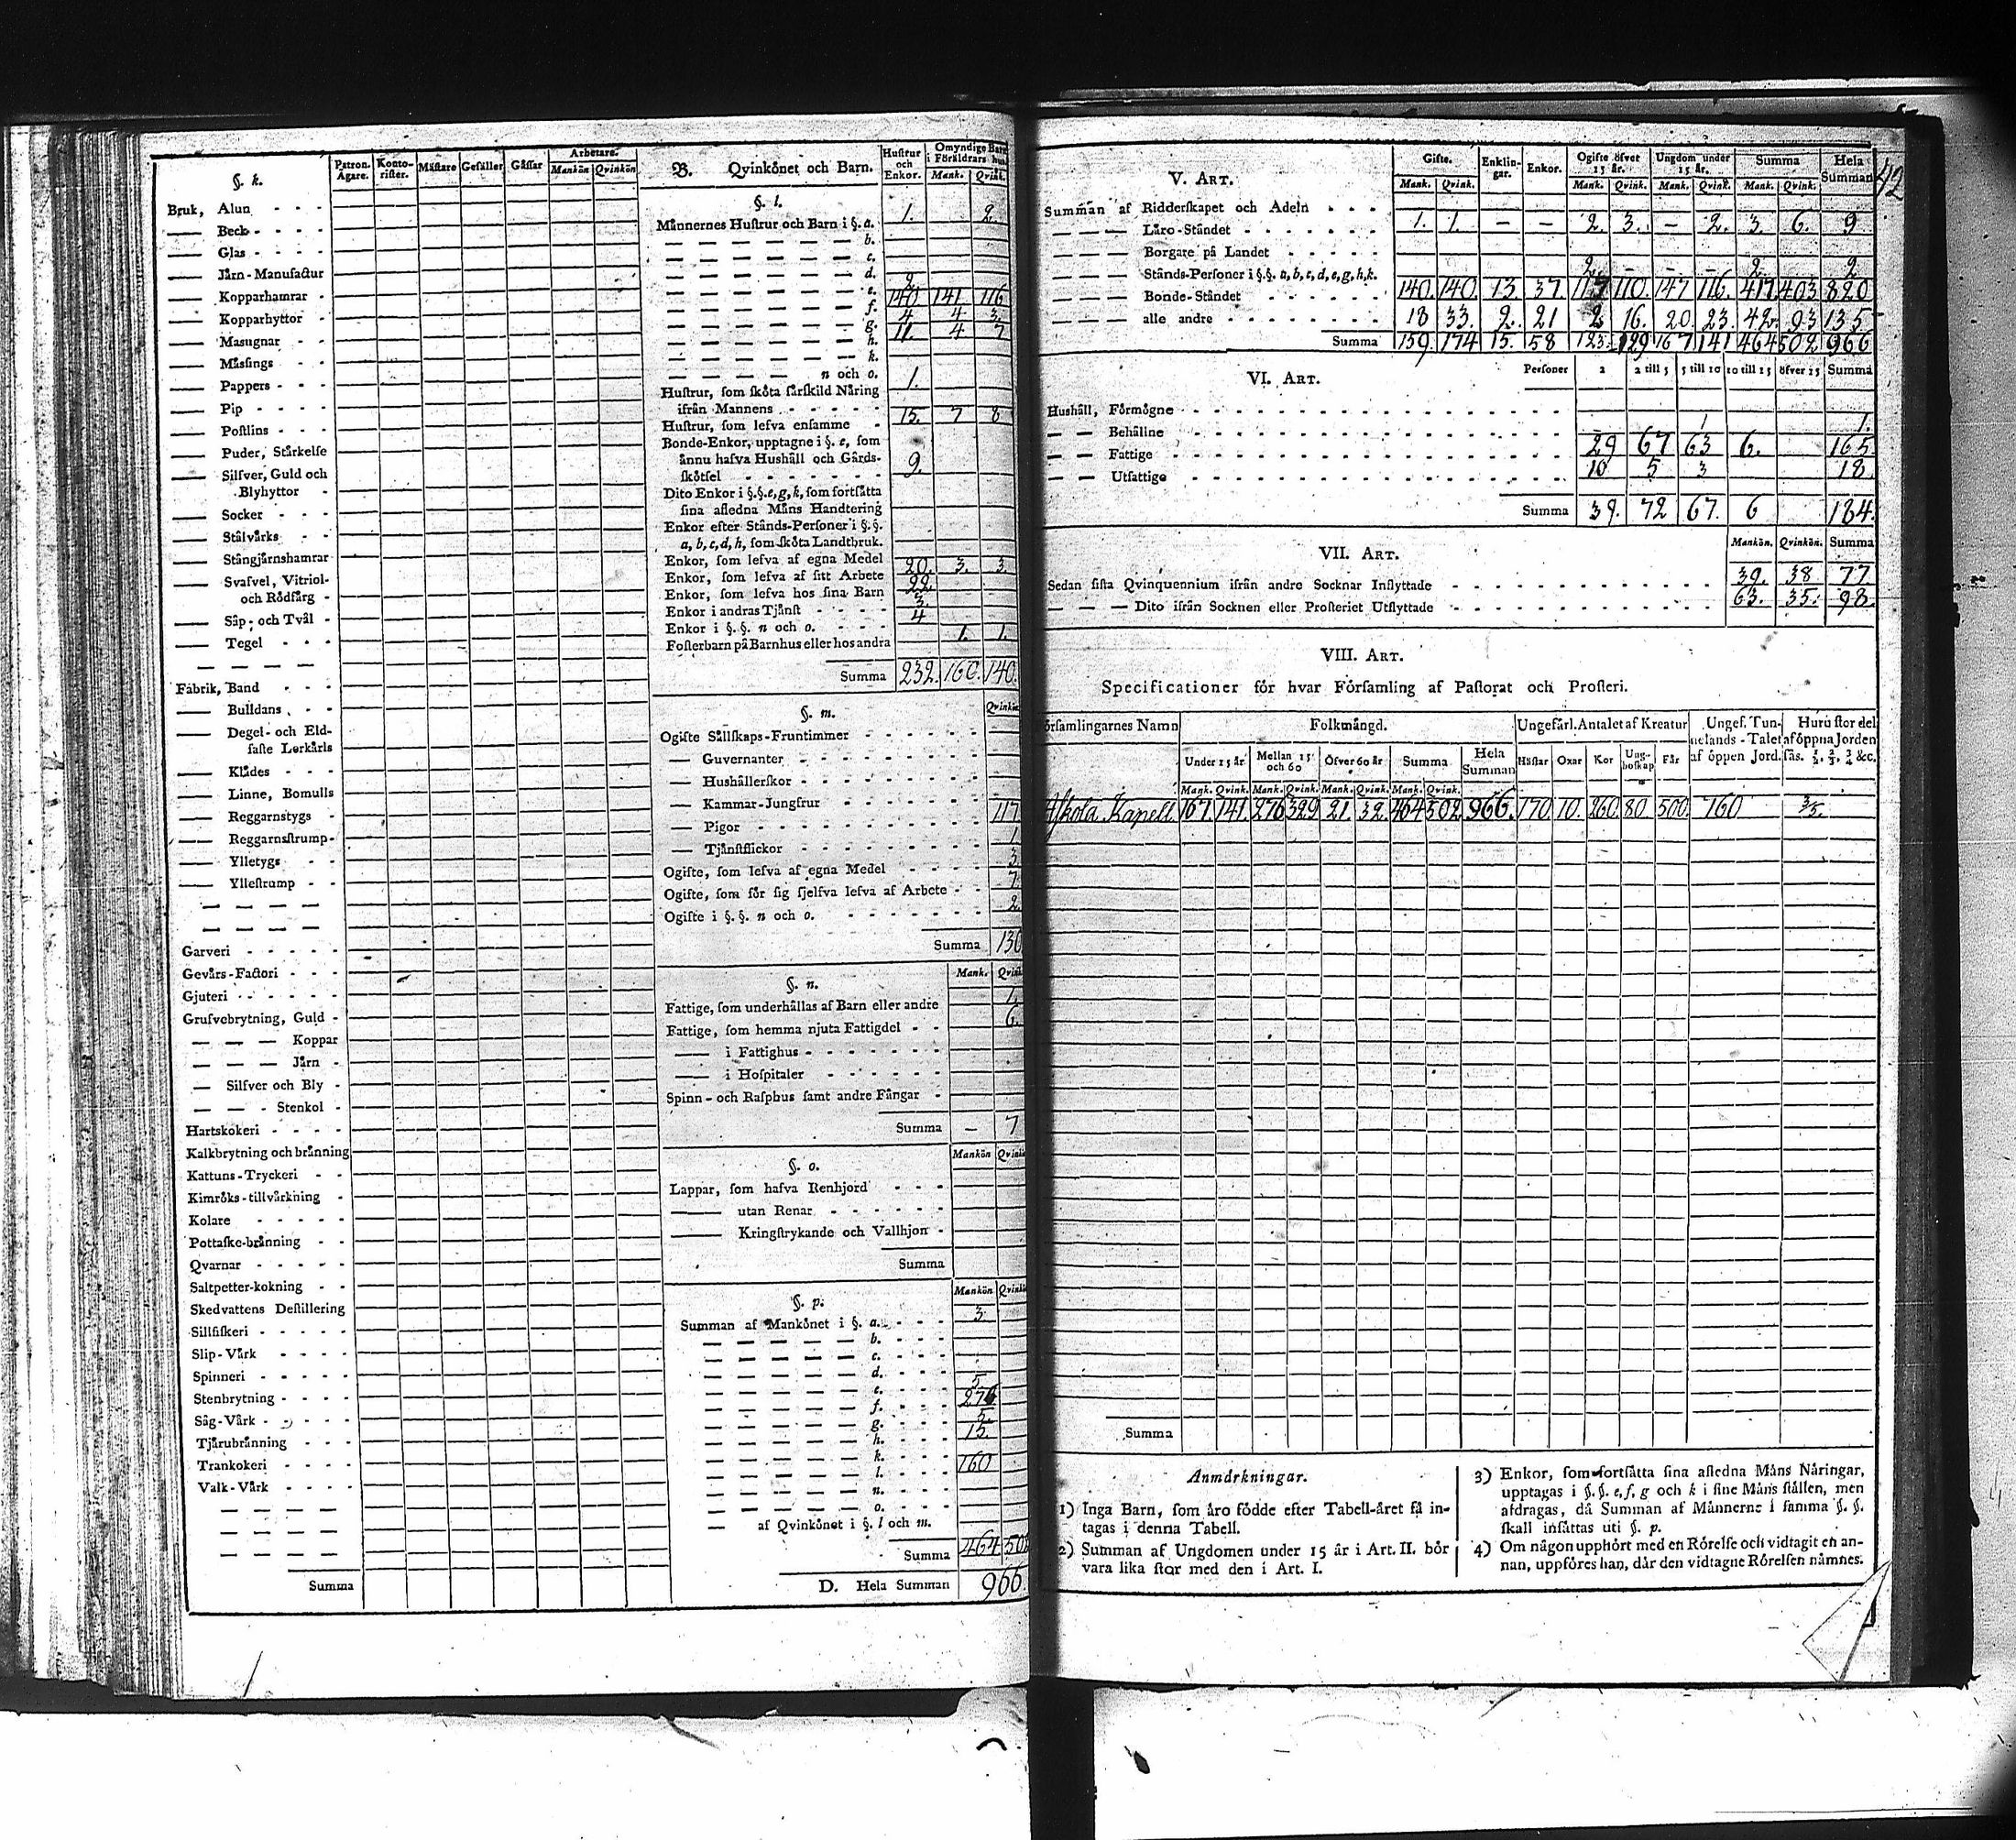 §. k.
Patron. Ägare.
Konto-rister.
Måstare
Gesäller
Gåssar
Arbetare.
Mankön
Qvinkön
Bruk, Alun
Beck
Glas
Järn-Manufactur
Kopparhamrar
Kopparhyttor
Masugnar
Måsings
Pappers
Pip
Postlins
Puder, Stårkelse
Silfver, Guld och
Blyhyttor
Socker
Stålvårks
Stångjårnshamrar
Svafvel, Vitriol-
och Rödfårg
Såp- och Tvål
Tegel
Fabrik, Band
Bulldans
Degel- och Eld-
faste Lerkårls
Klådes
Linne, Bomulls
Reggarnstygs
Reggarnsstrump
Ylletygs
Yllestrump
Garveri
Gevårs-Factori
Gjuteri
Grufvebrytning, Guld
Koppar
Jårn
Silfver och Bly
Stenkol
Hartskokeri
Kalkbrytning och bränning
Kattuns-Tryckeri
Kimröks-tillvårkning
Kolare
Pottaske-bränning
Qvarnar
Saltpetter-kokning
Skedvattens Destillering
Sillfiskeri
Slip-Vårk
Spinneri
Stenbrytning
Såg-Vårk
Tjårubränning
Trankokeri
Valk-Vårk
Summa
B. Qvinkönet och Barn.
Hustrur och Enkor.
Omyndige Barn i Föråldrars hus
Mank. Qvink.
§. l.
Månnernes Hustrur och Barn i §. a. 1. 2.
b.
c.
d.
e. 2
f. 140 141 116
g. 4 4 3
h. 11. 4 7
k.
n och o.
Hustrur, som sköta sårskild Nåring 1.
ifrån Mannens
Hustrur, som lefva ensamme 15. 7 8
Bonde-Enkor, upptagne i §. e, som
ånnu hafva Hushåll och Gårds- 9.
skötsel
Dito Enkor i §.§. e, g, k, som fortsåtta
sina afledna Måns Handtering
Enkor efter Stånds-Personer i §.§.
a, b, c, d, h, som sköta Landtbruk.
Enkor, som lefva af egna Medel 20. 3. 3.
Enkor, som lefva af sitt Arbete 22.
Enkor, som lefva hos sina Barn 3.
Enkor i andras Tjånst 4
Enkor i §.§. n och o.
Fosterbarn på Barnhus eller hos andra 1. 1.
Summa 232. 160. 140.
§. m.
Qvinkön
Ogifte Sållskaps-Fruntimmer
Guvernanter
Hushållerskor
Kammar-Jungfrur
Pigor 117
Tjånstflickor 1.
Ogifte, som lefva af egna Medel 3
Ogifte, som för sig sjelfva lefva af Arbete 7
Ogifte i §.§. n och o. 2.
Summa 130
§. n.
Mank. Qvink
Fattige, som underhållas af Barn eller andre 1.
Fattige, som hemma njuta Fattigdel 6.
i Fattighus
i Hospitaler
Spinn- och Rasphus samt andre Fångar
Summa — 7
§. o.
Mankön Qvink
Lappar, som hafva Renhjord
utan Renar
Kringstrykande och Vallhjon
Summa
§. p.
Mankön Qvink
Summan af Mankönet i §. a. 3.
b.
c.
d.
e. 5
f. 276
g. 5.
h. 15.
k.
l. 160
n.
o.
af Qvinkönet i §. l och m.
Summa 464 502
D. Hela Summan 966.
42
V. ART.
Gifte. Enklin-gar. Enkor. Ogifte öfver 15 år. Ungdom under 15 år. Summa Hela Summan
Mank. Qvink. Mank. Qvink. Mank. Qvink. Mank. Qvink.
Summan af Ridderskapet och Adeln
Låro-Ståndet 1. 1. — — 2. 3. — 2. 3. 6. 9
Borgare på Landet
Stånds-Personer i §.§. a, b, c, d, e, g, h, k. 2. 2. 2
Bonde-Ståndet 140. 140. 13. 37. 117 110. 147 116. 417. 403 820
alle andre 18 33. 2. 21 2 16. 20. 23. 42. 93 135
Summa 159. 174 15. 58 123. 129 167 141 464 502 966
VI. ART.
Personer 2 2 till 5 5 till 10 10 till 15 öfver 15 Summa
Hushåll, Förmögne
Behållne 1 1.
Fattige 29 67 63 6. 165
Utfattige 10 5 3 18.
Summa 39. 72 67. 6 184.
VII. ART.
Mankön. Qvinkön. Summa
Sedan sista Qvinquennium ifrån andre Socknar Inflyttade 39. 38 77
Dito ifrån Socknen eller Prosteriet Utflyttade 63. 35. 98.
VIII. ART.
Specificationer för hvar Församling af Pastorat och Prosteri.
örsamlingarnes Namn
Folkmångd.
Ungefärl. Antalet af Kreatur
Ungef. Tun-nelands-Talet af öppen Jord.
Huru stor del af öppna Jorden sås. ½, ⅔, ¾ &c.
Under 15 år
Mellan 15 och 60
Öfver 60 år
Summa
Hela Summan
Håstar Oxar Kor Ung-boskap Får
Mank. Qvink. Mank. Qvink. Mank. Qvink. Mank. Qvink.
Askola Kapell 167. 141. 276 329 21. 32. 464 502. 966. 170. 10. 260. 80 500. 760 3/5.
Summa
Anmårkningar.
1) Inga Barn, som åro födde efter Tabell-året få in-
tagas i denna Tabell.
2) Summan af Ungdomen under 15 år i Art. II. bör
vara lika stor med den i Art. I.
3) Enkor, som fortsåtta sina afledna Måns Nåringar,
upptagas i §.§. e, f, g och k i sine Måns stållen, men
afdragas, då Summan af Månnerne i samma §.§.
skall insåttas uti §. p.
4) Om någon upphört med en Rörelse och vidtagit en an-
nan, uppföres han, dår den vidtagne Rörelsen nåmnes.